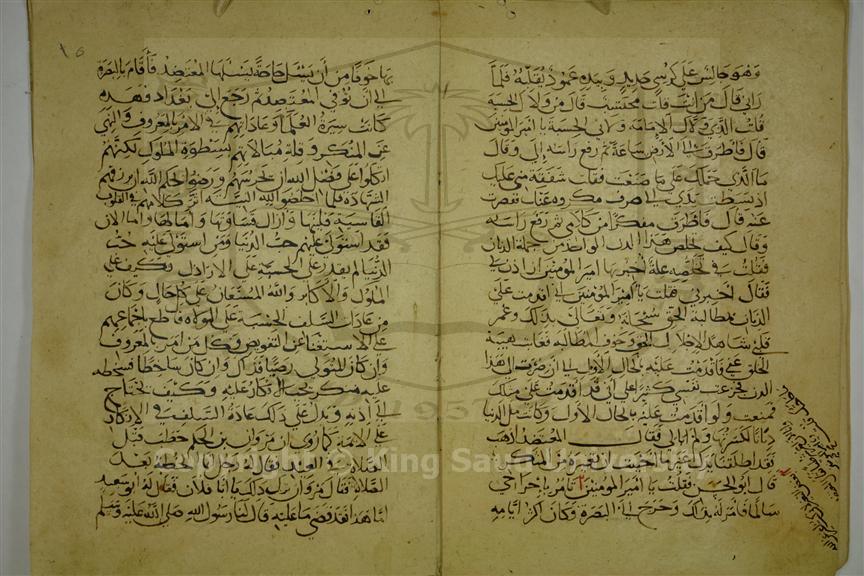 وهو جالس على كرسي حديد وبيده عمود يقلبه فلما
راني قال من انت قلت محتسب قال من ولاك الحسبة
قلت الذي ولاك الامامة ولاني الحسبة يا امير المومنين
قال فاطرق الى الارض ساعة ثم رفع راسه الي وقال
ما الذي حملك على ما صنعت فقلت شفقة مني عليك
اذ بسطت يدي الى صرف مكروه عنك فقصرت
عنه قال فاطرق مفكرا من كلامي ثم رفع راسه
وقال كيف خلص هذا الدن الواحد من جملة الدنان
فقلت في تخلصه علة اخبر بها امير المومنين ان اذن لي
فقال اخبرني فقلت يا امير المؤمنين اني اقدمت على
الدنان بمطالبة الحق سبحانه وتعالى بذلك وغمر
قلبي شاهد الاجلال للحق وخوف المطالبة فغابت هيبة
الخلق عني فاقدمت عليه بالحال الاول الى ان صرت الى هذا
الدن فجزعت نفسي كثيرا على اني قد اقدمت على مثلك
فمنعت ولو اقدمت عليه بالحال الاول وكانت ملء الدنيا
دنانا لكسرتها ولم ابالي فقال المعتضد اذهب
فقد اطلقنا يدك غير ما احببت ان تغيره من المنكر
قال ابو الحسن فقلت يا امير المومنين تامر باخراجي
سالما فامر له بذلك وخرج الى البصرة وكان اكثر ايامه
١٥
بها خوفا من ان يسئل حاجة يسئلها المعتضد فاقام بالبصرة
الى ان توفي المعتضد ثم رجع الى بغداد فهذه
كانت سيرة العلما وعاداتهم في الامر بالمعروف والنهي
عن المنكر وقلة مبالاتهم بسطوة الملوك لكنهم
اتكلوا على فضل الله ان يحرسهم ورضوا بحكم الله ان يرزقهم
الشهادة فلما اخلصوا لله النية اثر كلامهم في القلوب
القاسية فلينها وازال قساوتها وامالها واما الان
فقد استولى عليهم حب الدنيا ومن استولى عليه حب
الدنيا لم يقدر على الحسبة على الاراذل وكيف على
الملوك والاكابر والله المستعان على كل حال وكان
من عادات السلف الحسبة على الولاة قاطع باجماعهم
على الاستغنا عن التفويض وكل من امر بالمعروف
وان كان المتولي رضيا فذاك وان كان ساخطا فسخطه
عليه منكر يجب الانكار عليه وكيف يحتاج
الى اذنه ويدل على ذلك عادة السلف في الانكار
على الائمة كما روي ان مروان بن الحكم خطب قبل
الصلاة في العيد فقال له رجل انما الخطبة بعد
الصلاة فقال مروان ترك ذلك يا ابا فلان فقال له ابو سعيد
اما هذا فقد قضى ما عليه قال لنا رسول الله صلى الله عليه وسلم
Copyright © King Saud University
1957